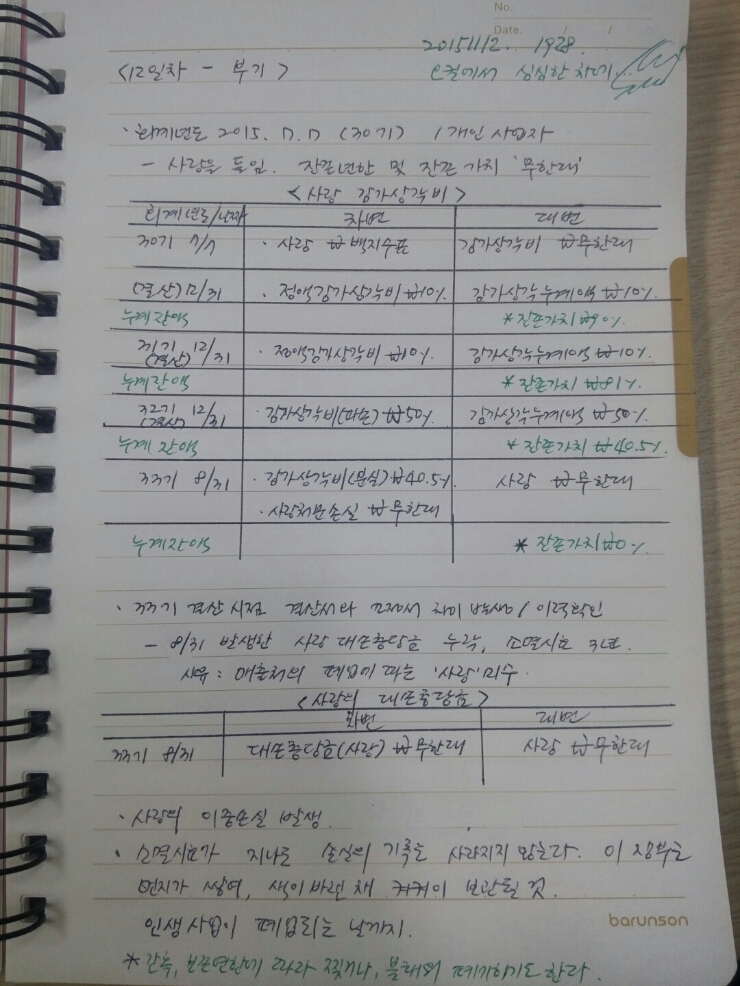 No.
Date. / /
20151112. 1928.
심심한 차에..
<12일차 - 부기>
· 회계년도 2015. 7. 7 (30기) / 개인 사업자
- 사랑을 들임. 잔존년한 및 잔존 가치 '무한대'
<사랑 감가상각비>
회계년도/날짜 차변 대변
30기 7/7 · 사랑 ₩백지수표 감가상각비 ₩무한대
(결산) 12/31 · 정액감가상각비 ₩10% 감가상각누계액 ₩10%.
누계잔액 * 잔존가치 ₩90%.
31기 (결산) 12/31 · 정액감가상각비 ₩10% 감가상각누계액 ₩10%.
누계잔액 * 잔존가치 ₩81%.
32기 (결산) 12/31 · 감가상각비(파손) ₩50% 감가상각누계액 ₩50%.
누계잔액 * 잔존가치 ₩40.5%
33기 8/31 · 감가상각비(분실) ₩40.5%. 사랑 ₩무한대
· 사랑처분손실 ₩무한대
누계잔액 * 잔존가치 ₩0%.
· 33기 결산 시점 결산서와 차이 발생 / 이력확인
- 8/31 발생한 사랑 대손충당금 누락, 소멸시효 3년.
사유 : 매출처의 폐업에 따른 '사랑' 미수.
<사랑의 대손충당금>
차변 대변
33기 8/31 대손충당금(사랑) ₩무한대 사랑 ₩무한대
· 사랑의 이중손실 발생.
· 소멸시효가 지나도 손실의 기록은 사라지지 않는다. 이 장부는
먼지가 쌓여, 색이 바랜 채 켜켜이 보관될 것.
인생사업이 폐업되는 날까지.
barunson
* 간혹, 보존연한에 따라 찢거나, 불태워 폐기하기도 한다.